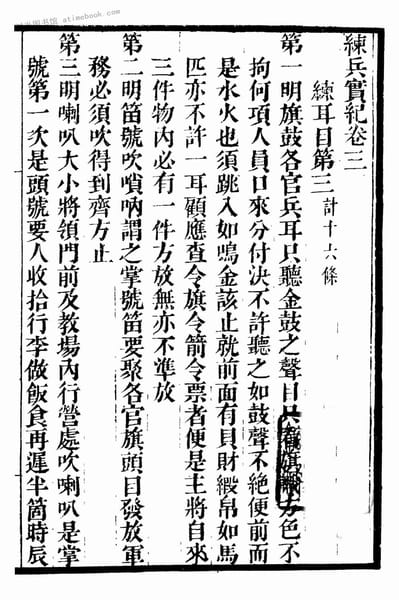 图书馆 - atimebook.com
練兵實紀卷三
練耳目第三 計十六條
第一明旗鼓各官兵耳只聽金鼓之聲目只看旗幟方色不
拘何項人員口來分付決不許聽之如鼓聲不絕便前面
是水火也須跳入如鳴金該止就前面有貝財緞帛如馬
匹亦不許一耳顧應查令旗令箭令票者便是主將自來
三件物內必有一件方放無亦不準放
第二明笛號吹嗩吶謂之掌號笛要聚各官旗頭目發放軍
務必須吹得到齊方止
第三明喇叭大小將領門前及教場內行營處吹喇叭是掌
號第一次是頭號要人收拾行李做飯食再遲半箇時辰